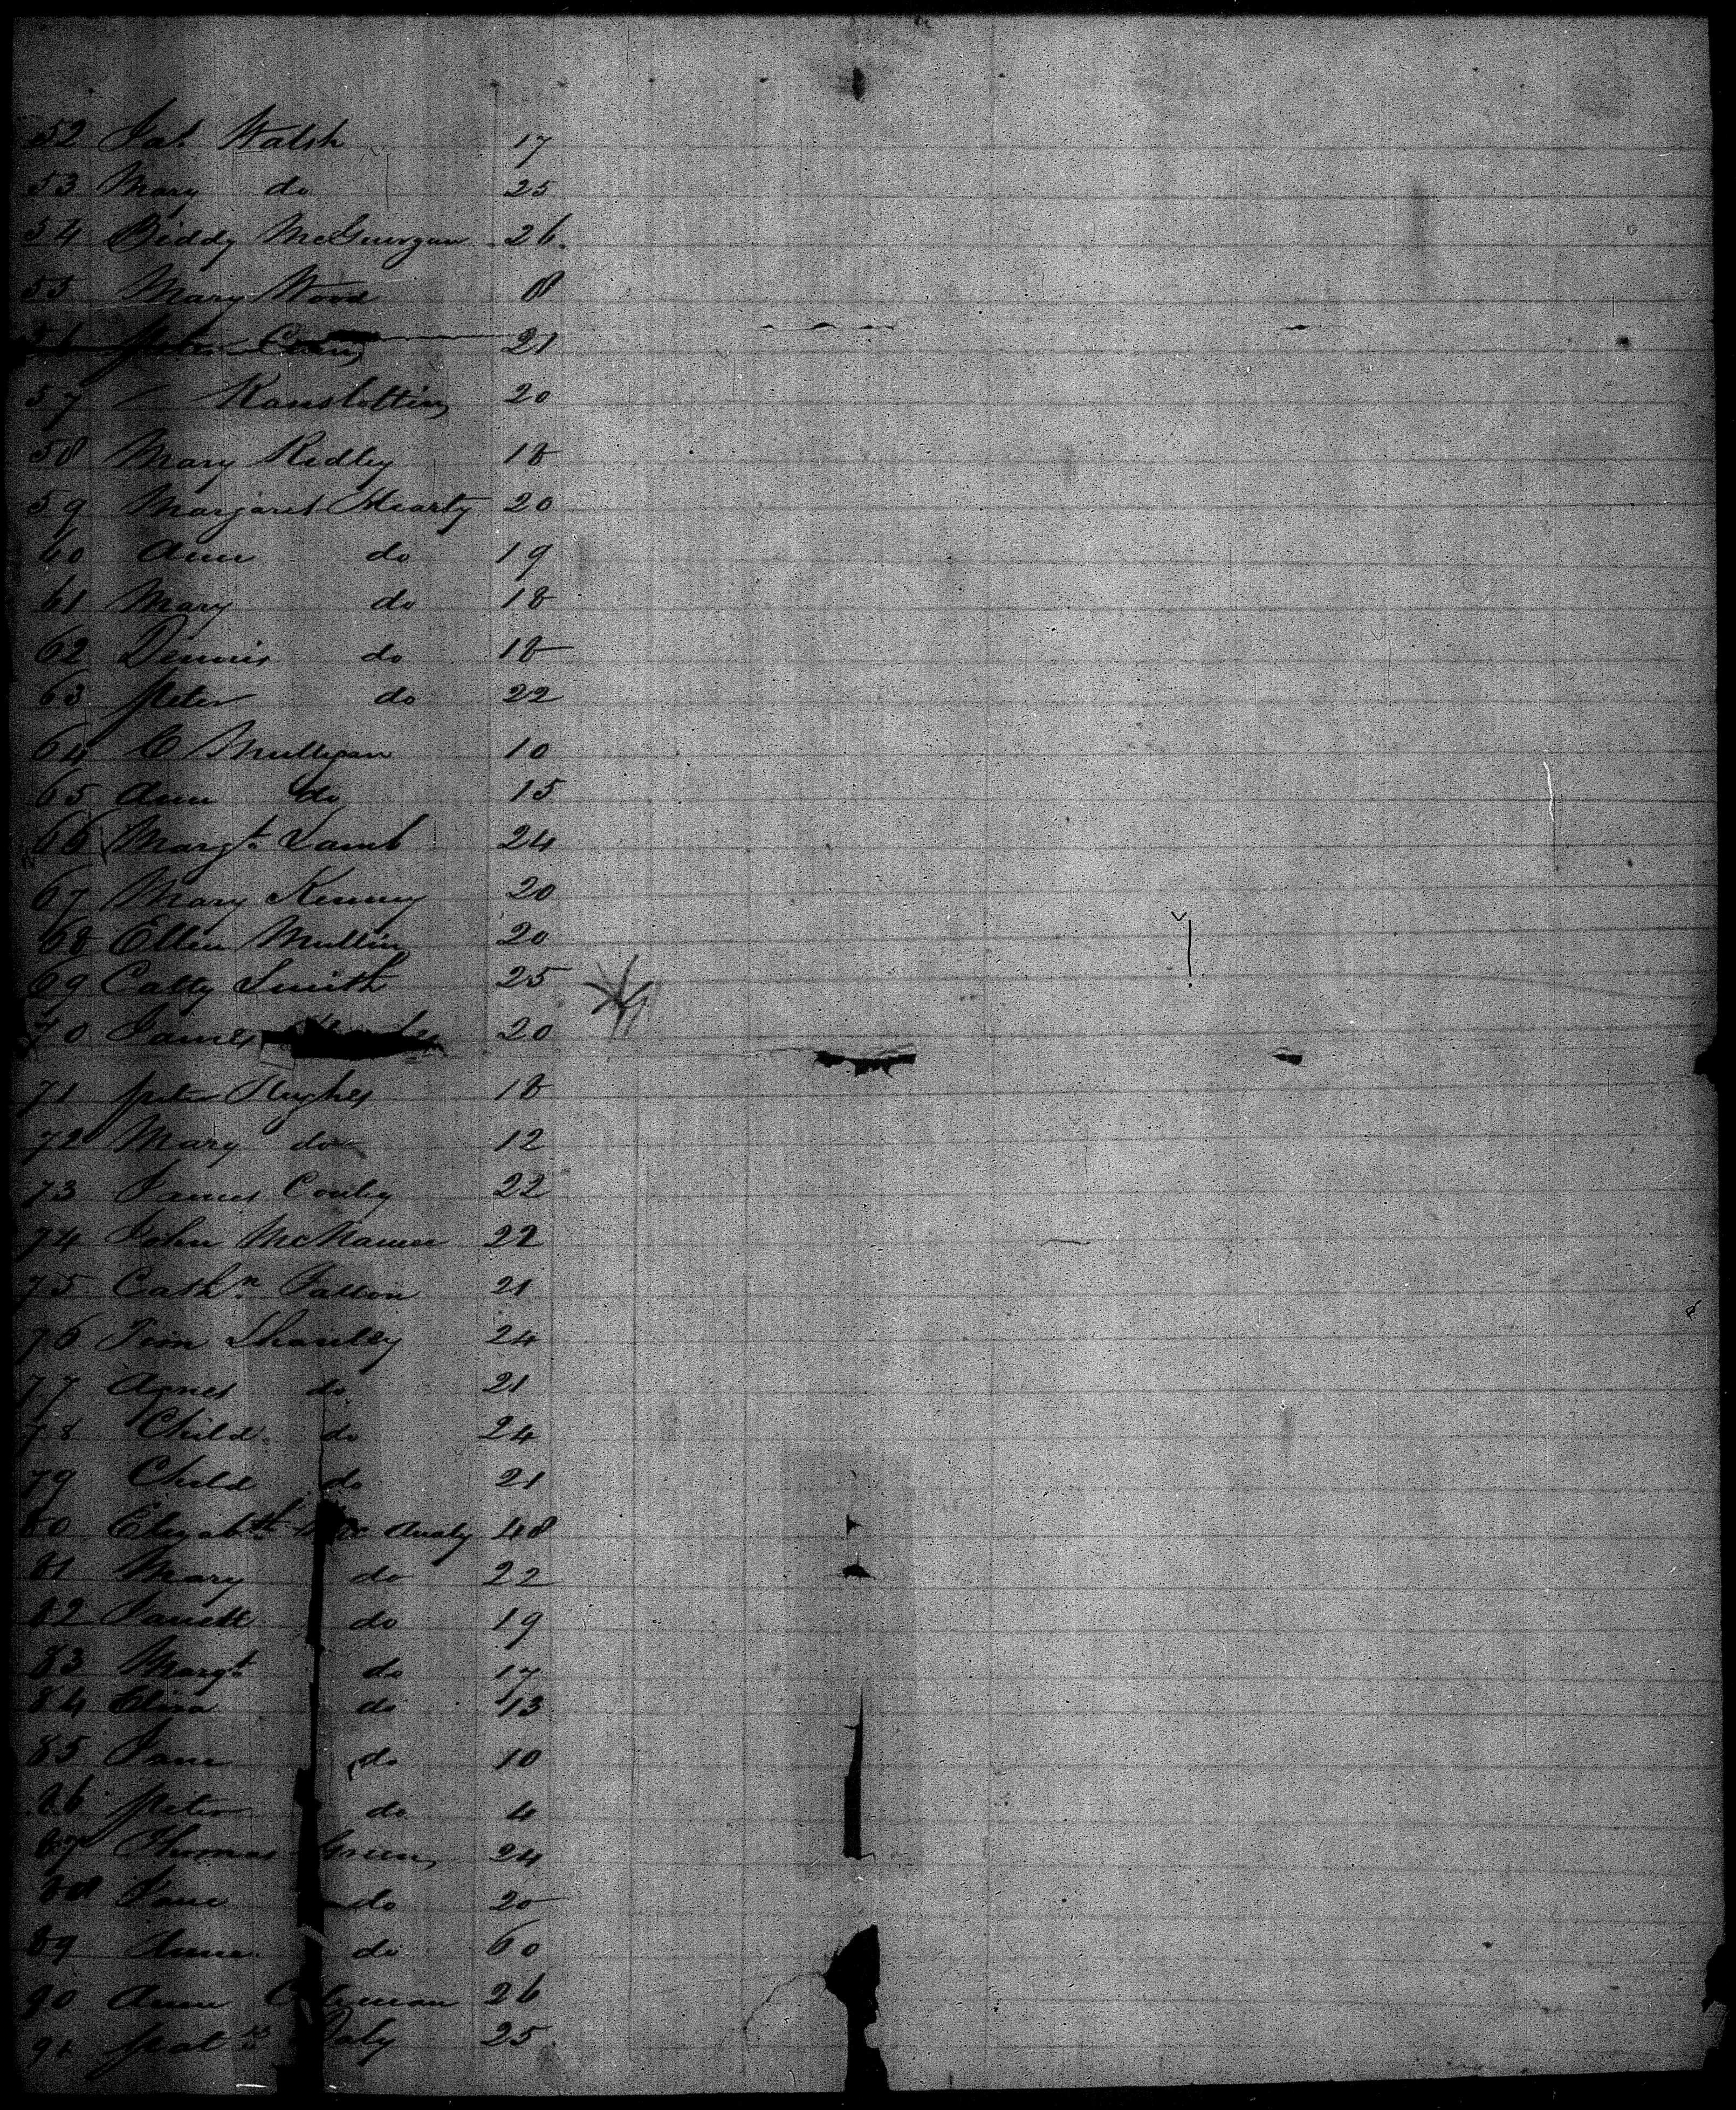 52 Jas. Walsh 17
53 Mary do 25
54 Biddy McGuurgan 26.
55 Mary Wood 8
Peter 21
57 20
58 Mary Ridley 18
59 Margaret Hearty 20
60 Ann do 19
61 Mary do 18
62 Dennis do 18
63 Peter do 22
64 C Mulligan 10
65 Ann do 15
66 Margt. Lamb 24
67 Mary Kenny 20
68 Ellen Mullin 20
69 Catty Smith 25
70 James 20
71 Peter Hughes 18
72 Mary do 12
73 James Conley 22
74 John McNamee 22
75 Cathn. Fallon 21
76 Tim Shanley 24
77 Agnes do 21
78 Child do 24
79 Child do 21
80 Elizabth. 48
81 Mary do 22
82 Janett do 19
83 Margt. do 17
84 Eliza do 13
85 Jane do 10
86 Peter do 4
87 Thomas Green 24
88 Jane do 20
89 Anne do 60
90 Anne 26
91 Patk. Daly 25